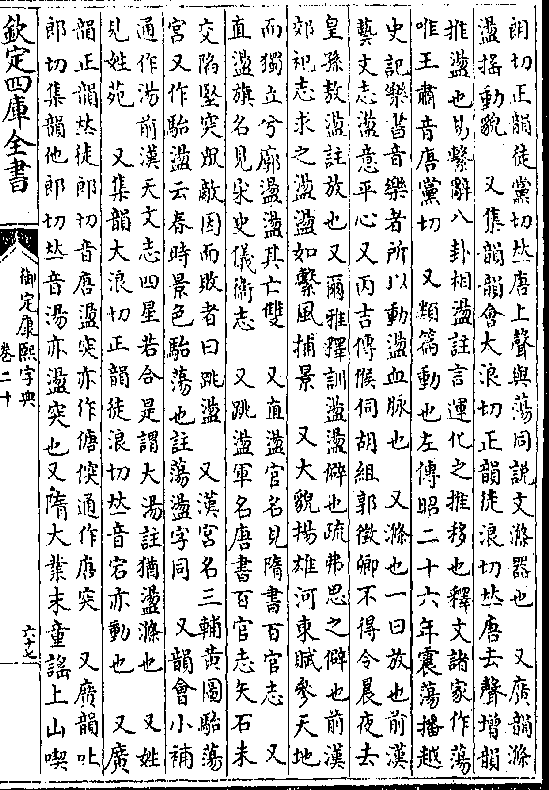 朗切正韻徒黨切𠀤唐上聲與蕩同說文滌器也　又廣韻滌
盪搖動貌　又集韻韻會大浪切正韻徒浪切𠀤唐去聲增韻
推盪也易繫辭八卦相盪註言運化之推移也釋文諸家作蕩
唯王肅音唐黨切　又類篇動也左傳昭二十六年震蕩播越
史記樂書音樂者所以動盪血脉也　又滌也一曰放也前漢
藝文志盪意平心又丙吉傳候伺胡組郭徵卿不得令晨夜去
皇孫敖盪註放也又爾雅釋訓盪盪僻也疏弗思之僻也前漢
郊祀志求之盪盪如繫風捕景　又大貌揚雄河東賦參天地
而獨立兮廓盪盪其亡雙　又直盪官名見隋書百官志　又
直盪旗名見宋史儀衛志　又跳盪軍名唐書百官志矢石未
交陷堅突眾敵因而敗者曰跳盪　又漢宮名三輔黃圖駘蕩
宮又作駘盪云春時景色駘蕩也註蕩盪字同　又韻會小補
通作湯前漢天文志四星若合是謂大湯註猶盪滌也　又姓
見姓苑　又集韻大浪切正韻徒浪切𠀤音宕亦動也　又廣
韻正韻𠀤徒郎切音唐盪突亦作傏突通作唐突　又廣韻吐
郎切集韻他郎切𠀤音湯亦盪突也又隋大業末童謠上山喫
欽定四庫全書
御定康熙字典
卷二十
六十七